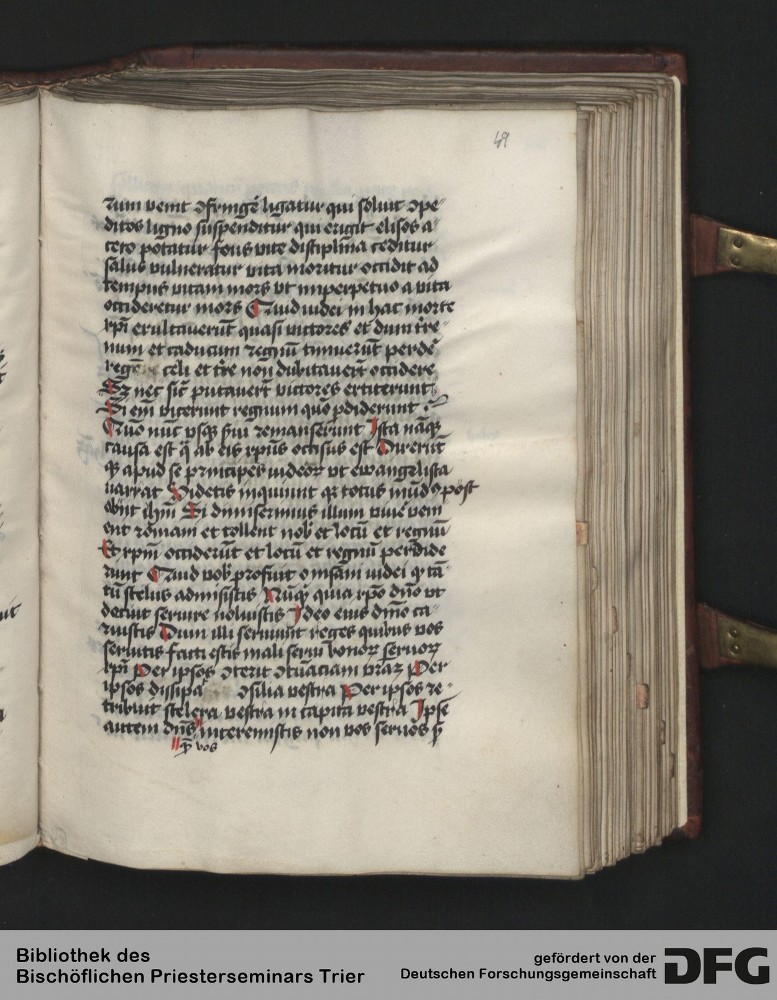 49
rum venit ꝯfringe͂ ligatur qui soluit ꝯpe-
ditos ligno suspenditur qui erigit elisos a-
ceto potatur fons vite disciplina ceditur
salus vulneratur vita moritur occidit ad
tempus vitam mors vt imperpetuo a vita
occideretur mors Quid iudei in hac morte
xp̄i exultauerūt quasi victores et dum t̄re-
num et caducum regnū timuerūt perde͂
regē celi et t̄re non dubitauer̄t occidere
Sz nec sic̄ putauer̄t victores extiterunt
Si em̄ vicerunt regnum quō ꝑdiderunt
Quō nūc vsqꝫ s̄ui remanserunt Ista nāqꝫ
causa est q̄ ab eis xp̄us occisus est Dixerūt
qꝫ apud se principes iudeoꝝ vt ewangelista
narrat Videtis inquiunt qꝫ totus mūdꝰ post
ihm̄ Si dimiserimus illum viuē veni-
ent romani et tollent nob̄ et locū et regnū
Et xp̄m occiderūt et locū et regnū perdide
runt Quid vob̄ profuit o infāni iudei qꝫ tā-
tū scelus admisistis Nūqꝫ quia xp̄o dn̄o vt
decuit seruire noluistis Ideo eius dn̄io ca-
ruistis Dum illi seruiunt reges quibus vos
seruitis facti estis mali serui bonoꝝ seruoꝝ
xp̄i Per ipsos ꝯterit ꝯtumaciam vr̄aꝫ Per
ipsos dissipa ꝯsilia vestra Per ipsos re-
tribuit scelera vestra in capita vestra Ipse
autem dn̄s interemistis non vos seruos s̄
vos
Bibliothek des
Bischöflichen Priesterseminars Trier
gefördert von der
Deutschen Forschungsgemeinschaft
DFG